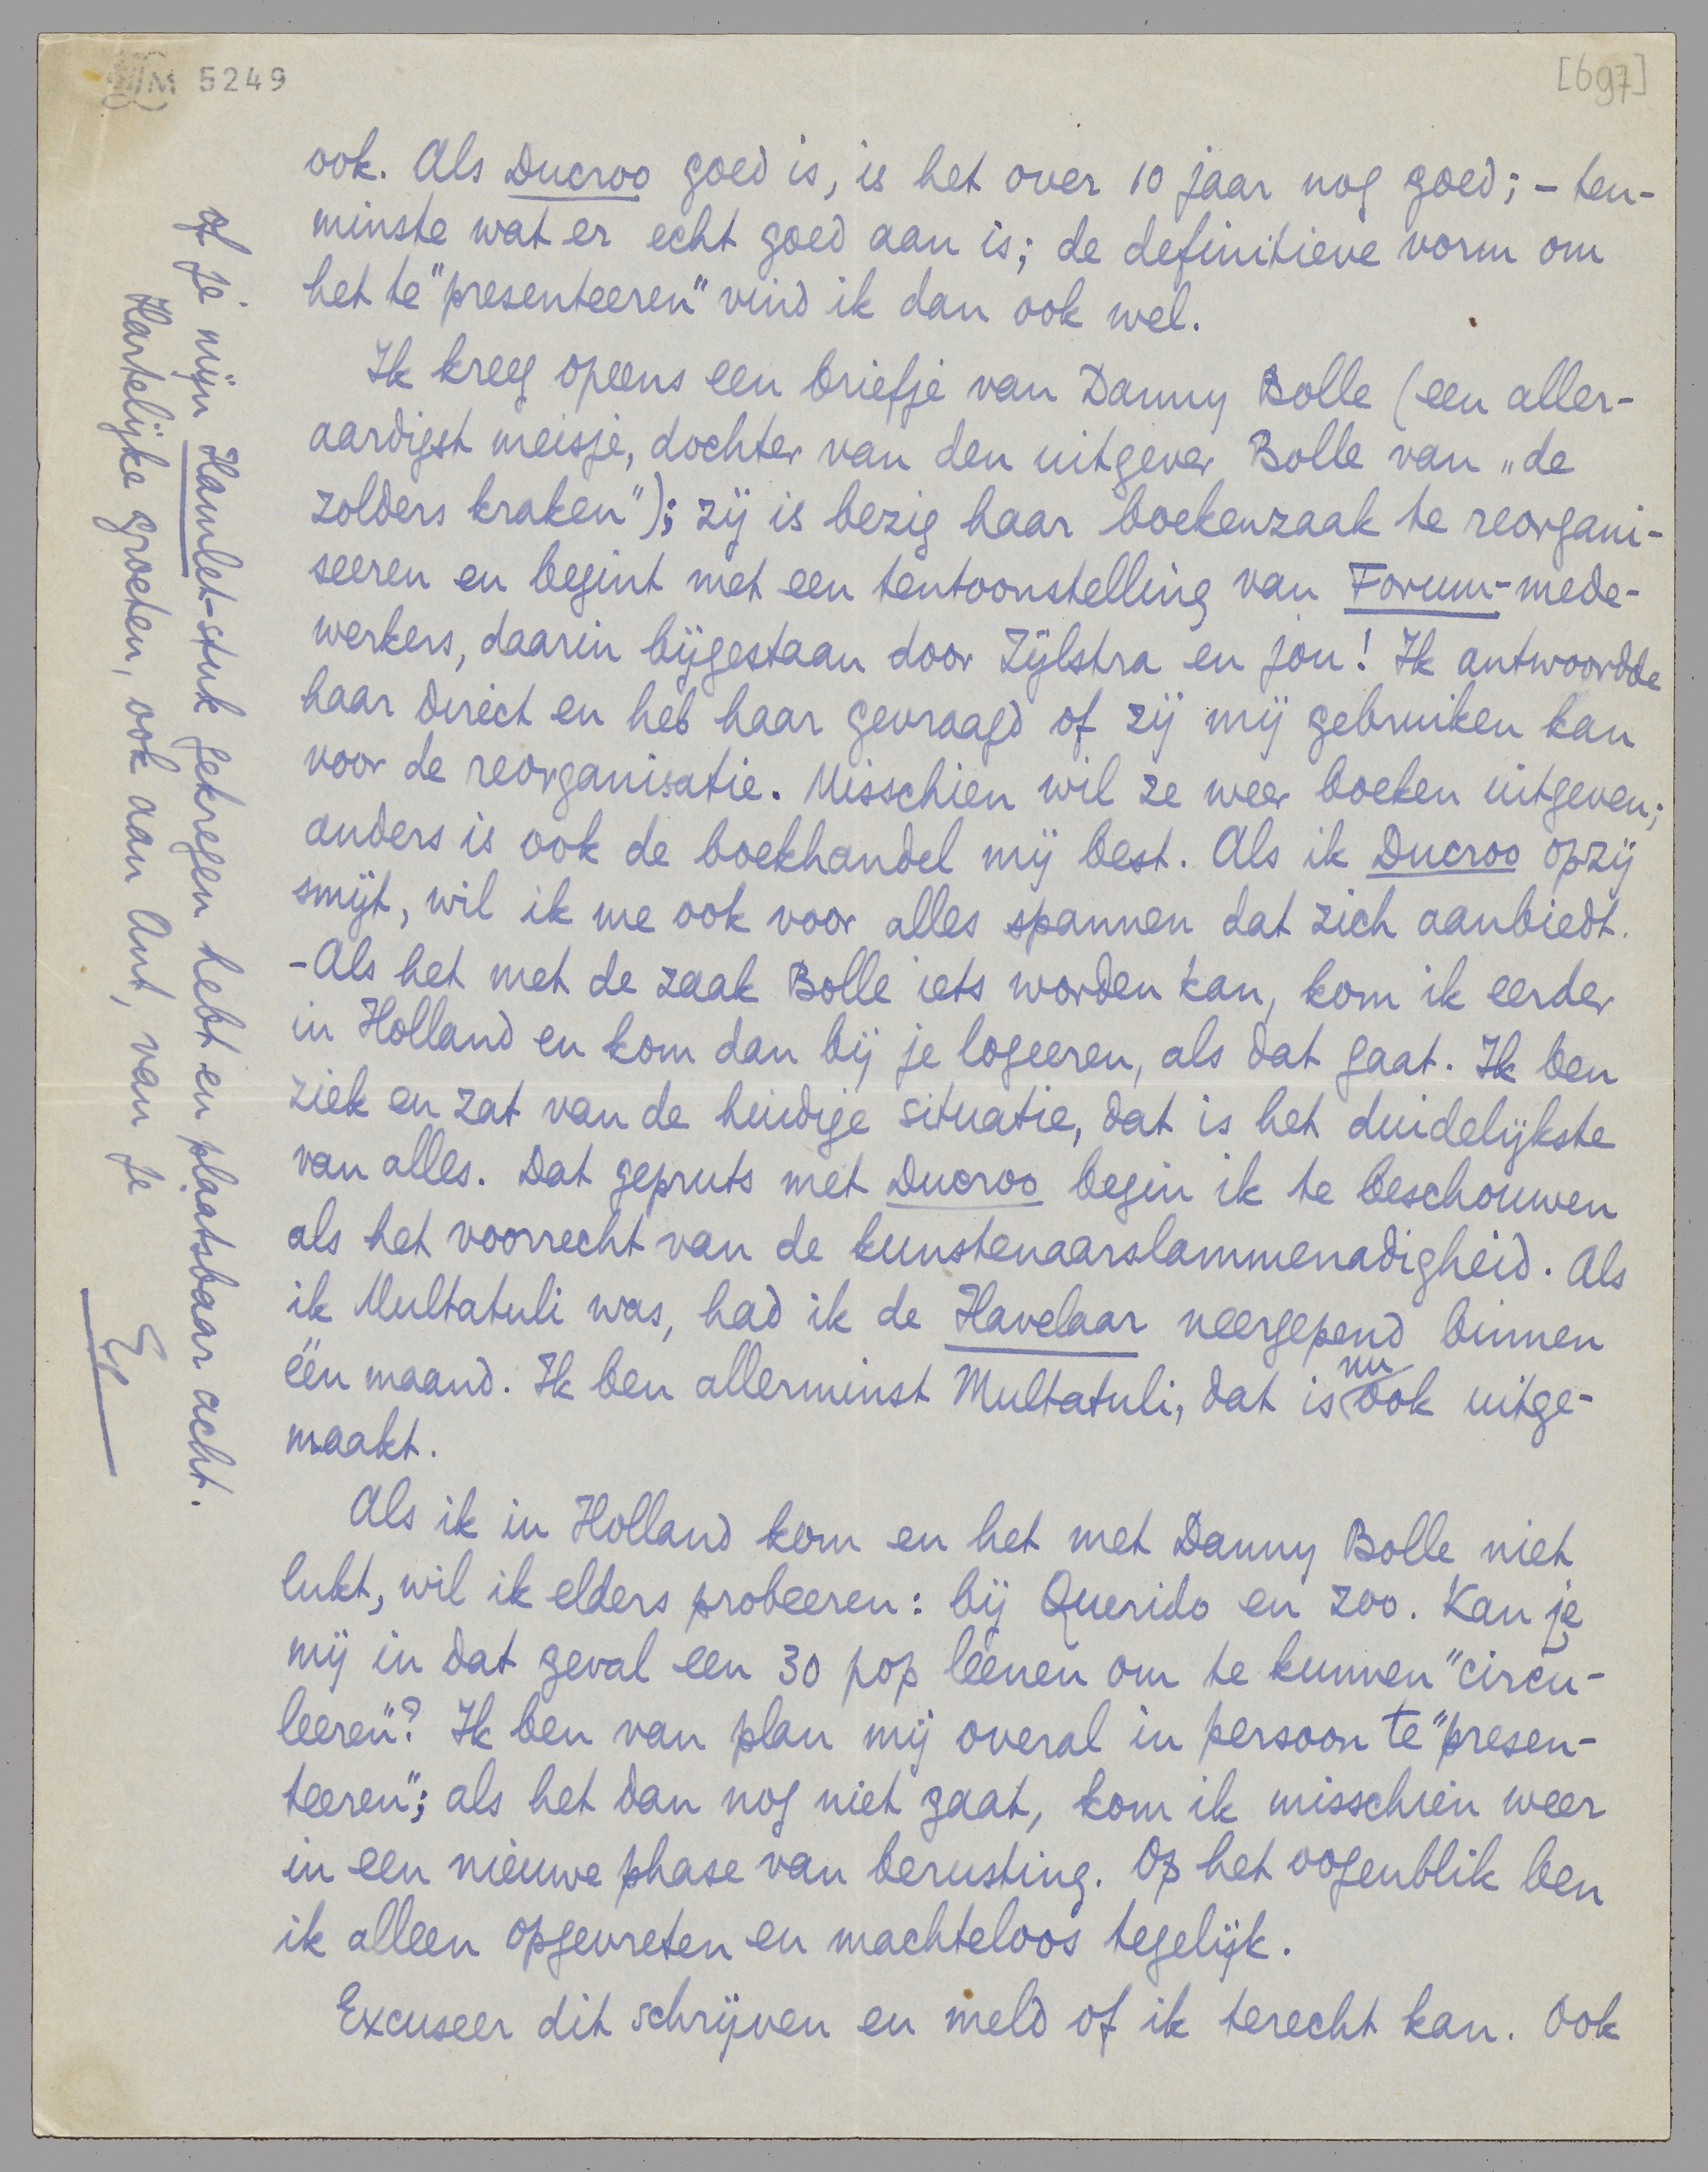 M 5249
[697]
ook. Als Ducroo goed is, is het over 10 jaar nog goed; – ten-
minste wat er echt goed aan is; de definitieve vorm om
het te "presenteeren" vind ik dan ook wel.
Ik kreeg opeens een briefje van Danny Bolle (een aller-
aardigst meisje, dochter van den uitgever Bolle van „de
zolders kraken"); zij is bezig haar boekenzaak te reorgani-
seeren en begint met een tentoonstelling van Forum-mede-
werkers, daarin bijgestaan door Zijlstra en jou! Ik antwoordde
haar direct en heb haar gevraagd of zij mij gebruiken kan
voor de reorganisatie. Misschien wil ze weer boeken uitgeven;
anders is ook de boekhandel mij best. Als ik Ducroo opzij
smijt, wil ik me ook voor alles spannen dat zich aanbiedt.
– Als het met de zaak Bolle iets worden kan, kom ik eerder
in Holland en kom dan bij je logeeren, als dat gaat. Ik ben
ziek en zat van de huidige situatie, dat is het duidelijkste
van alles. Dat gepruts met Ducroo begin ik te beschouwen
als het voorrecht van de kunstenaarslammenadigheid. Als
ik Multatuli was, had ik de Havelaar neergepend binnen
één maand. Ik ben allerminst Multatuli, dat is nu ook uitge-
maakt.
Als ik in Holland kom en het met Danny Bolle niet
lukt, wil ik elders probeeren: bij Querido en zoo. Kan je
mij in dat geval een 30 pop leenen om te kunnen "circu-
leeren"? Ik ben van plan mij overal in persoon te "presen-
teeren"; als het dan nog niet gaat, kom ik misschien weer
in een nieuwe phase van berusting. Op het oogenblik ben
ik alleen opgevreten en machteloos tegelijk.
Excuseer dit schrijven en meld of ik terecht kan. Ook
of je mijn Hamlet-stuk gekregen hebt en plaatsbaar acht.
Hartelijke groeten, ook aan Ant, van je
E